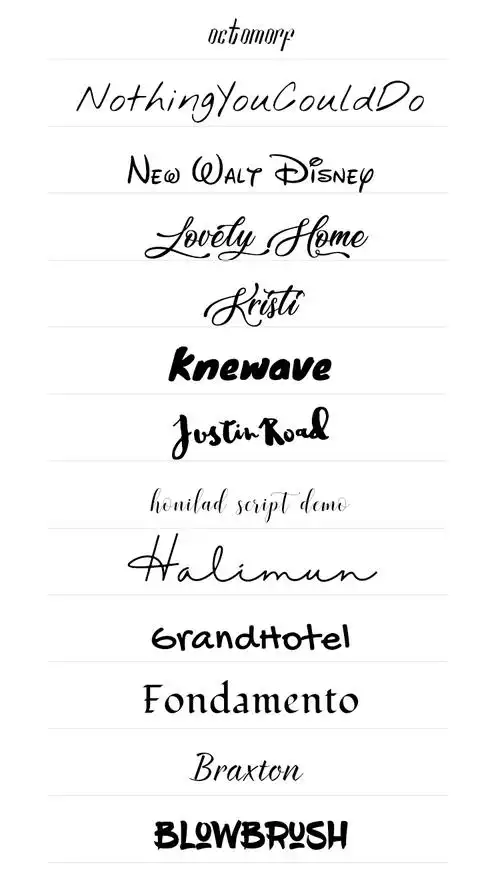 octomorf
NothingYouCouldDo
New Walt Disney
Lovely Home
Kristi
Knewave
JustinRoad
honilad script demo
Halimun
GrandHotel
Fondamento
Braxton
BLOWBRUSH